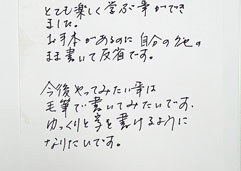 とても楽しく学ぶ事ができ
ました。
お手本があるのに自分のくせの
まま書いて反省です。
今後やってみたい事は
毛筆で書いてみたいです。
ゆっくりと字を書けるように
なりたいです。